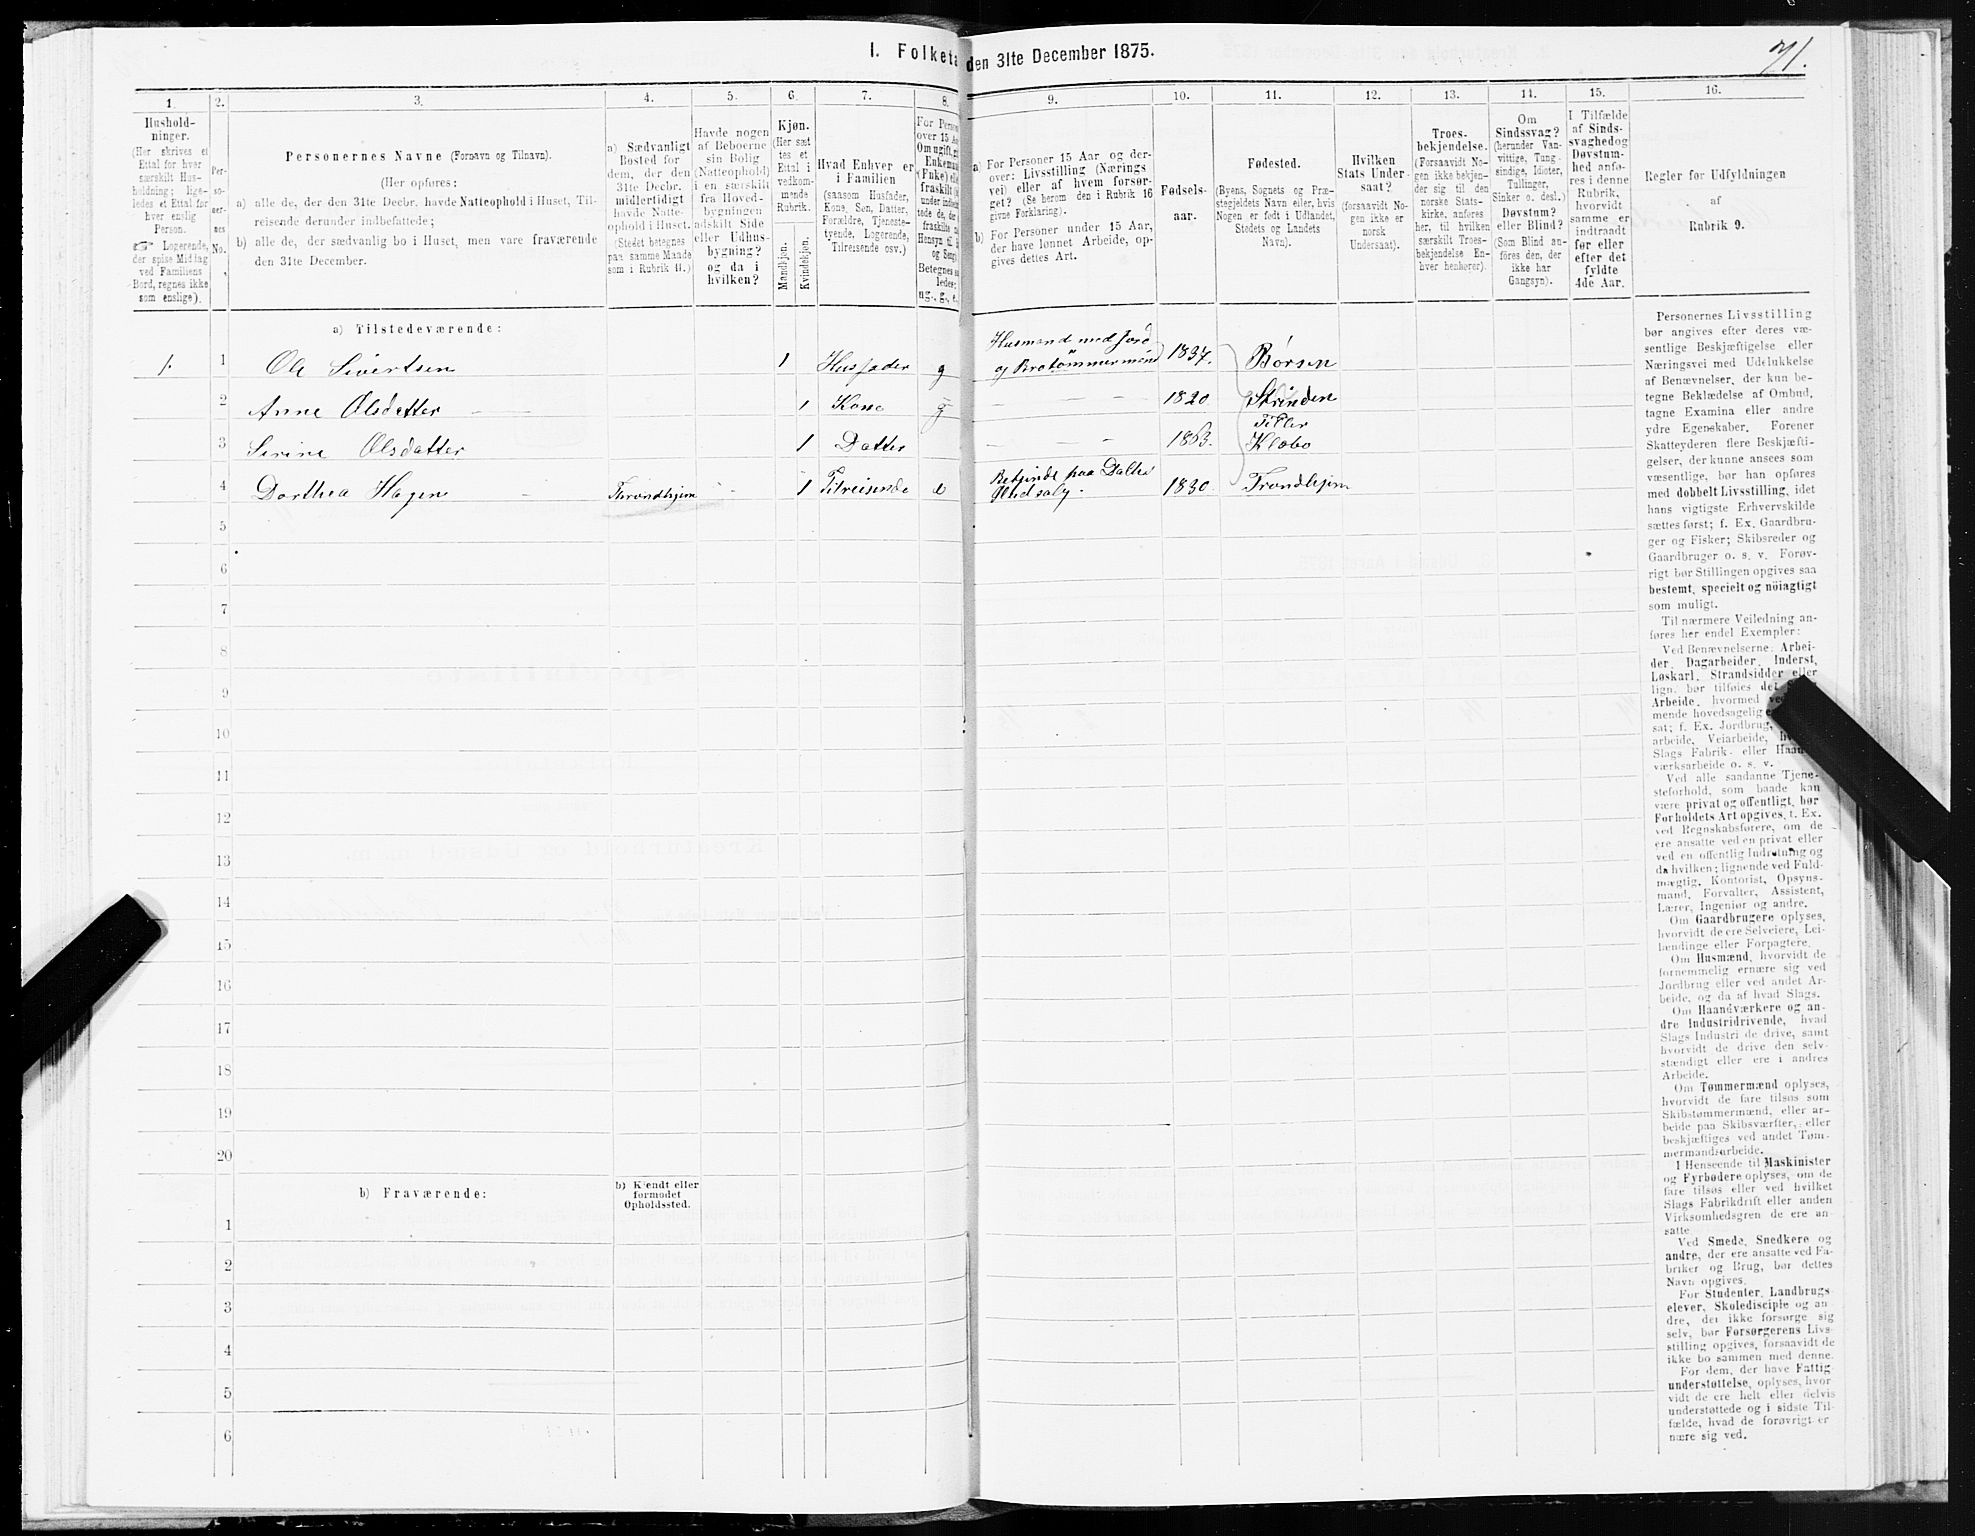 I. Folketæ
den 31te December 1875.
71.
1.
2.
3.
4.
5.
6.
7.
8.
9.
10.
11.
12.
13.
14.
15.
16.
Hushold-
ninger.
(Her skrives et
Ettal for hver
særskilt Hus-
holdning; lige-
ledes et Ettal for
hver enslig
Person.
☞ Logerende,
der spise Middag
ved Familiens
Bord, regnes ikke
som enslige).
Per-
so-
ner-
nes
No.
Personernes Navne (Fornavn og Tilnavn).
(Her opføres:
a) alle de, der den 31te Decbr. havde Natteophold i Huset, Til-
reisende derunder indbefattede;
b) alle de, der sædvanlig bo i Huset, men vare fraværende
den 31te December.
a) Sædvanligt
Bosted for
dem, der den
31te Decbr.
midlertidigt
havde Natte-
ophold i Huset.
(Stedet betegnes
paa samme Maade
som i Rubrik 11.)
Havde nogen
af Beboerne
sin Bolig
(Natteophold)
i en særskilt
fra Hoved-
bygningen
adskilt Side
eller Udhus-
bygning?
og da i
hvilken?
Kjøn.
(Her sæt
tes et
Ettal i
vedkom-
mende
Rubrik.
Mandkjøn.
Kvindekjøn.
Hvad Enhver er
i Familien
(saasom Husfader,
Kone, Søn, Datter,
Forældre, Tjeneste-
tyende, Logerende,
Tilreisende osv.)
For Person
over 15 Aa
Om ugift, gi
Enkema
(Enke) elle
fraskilt
Betegnes sa
ledes:
ug., g., e.,
a) For Personer 15 Aar og der-
over: Livsstilling (Nærings
vei) eller af hvem forsør-
get? (Se herom den i Rubrik 16
givne Forklaring).
b) For Personer under 15 Aar,
der have lønnet Arbeide, op-
gives dettes Art.
Fødsels-
aar.
Fødested.
(Byens, Sognets og Præ-
stegjeldets Navn eller, hvis
Nogen er født i Udlandet,
Stedets og Landets
Navn).
Hvilken
Stats Under-
saat?
(forsaavidt No-
gen ikke er
norsk
Undersaat).
Troes-
bekjendelse.
(Forsaavidt No-
gen ikke bekjen-
der sig til den
norske Stats-
kirke, anføres
her, til hvilken
særskilt Troes-
bekjendelse En-
hver henhører).
Om
Sindssvag?
(herunder Van-
vittige, Tung-
sindige, Idioter,
Tullinger,
Sinker o. desl.)
Døvstum?
eller Blind?
(Som Blind an-
føres den, der
ikke har
Gangsyn).
I Tilfælde
af Sinds-
svaghed og
Døvstum-
hed anfø-
res i denne
Rubrik,
hvorvidt
samme er
indtraadt
før eller
efter det
fyldte
4de Aar.
Regler for Udfyldningen
af
Rubrik 9.
a) Tilstedeværende:
Husmand med Jord
1. 1 Ole Sivertsen 1 Husfader g og Brotømmermand 1837. Børsen
2 Anne Olsdatter 1 Kone g 1820 Strinden
Tiller
3 Serine Olsdatter 1 Datter 1863. Klæbo
Betjende paa
4 Dorthea Hagen Throndhjem 1 Tilreisende e Øludsalg. 1830. Trondhjem
5
6
7
8
9
10
11
12
13
14
15
16
17
18
19
20
b) Fraværende:
b) Kjendt eller
formodet
Opholdssted.
1
2
3
4
5
6
Personernes Livsstilling
bør angives efter deres væ-
sentlige Beskjæftigelse eller
Næringsvei med Udelukkelse
af Benævnelser, der kun be-
tegne Beklædelse af Ombud,
tagne Examina eller andre
ydre Egenskaber. Forener
Skatteyderen flere Beskjæfti-
gelser, der kunne ansees som
væsentlige, bør han opføres
med dobbelt Livsstilling, idet
hans vigtigste Erhvervskilde
sættes først; f. Ex. Gaardbru-
ger og Fisker; Skibsreder og
Gaardbruger o. s. v. Forøv-
rigt bør Stillingen opgives saa
bestemt, specielt og nöiagtigt
som muligt.
Til nærmere Veiledning an-
føres her endel Exempler:
Ved Benævnelserne: Arbei-
der, Dagarbeider, Inderst,
Løskarl, Strandsidder eller
lign. bør tilføies det
Arbeide, hvormed ved
mende hovedsagelig
sat; f. Ex. Jordbrug,
arbeide, Veiarbeide,
Slags Fabrik- eller Haand-
værksarbeide o. s. v.
Ved alle saadanne Tjene-
steforhold, som baade kan
være privat og offentligt, bør
Forholdets Art opgives, t. Ex.
ved Regnskabsførere, om de
ere ansatte ved en privat eller
ved en offentlig Indretning og
da hvilken; lignende ved Fuld-
mægtig, Kontorist, Opsyns-
mand, Forvalter, Assistent,
Lærer, Ingeniør og andre.
Om Gaardbrugere oplyses,
hvorvidt de ere Selveiere, Lei-
lændinge eller Forpagtere.
Om Husmænd, hvorvidt de
fornemmelig ernære sig ved
Jordbrug eller ved andet Ar-
beide, og da af hvad Slags.
Om Haandværkere og an-
dre Industridrivende, hvad
Slags Industri de drive, samt
hvorvidt de drive den selv-
stændigt eller ere i andres
Arbeide.
Om Tømmermænd oplyses,
hvorvidt de fare tilsøs som
Skibstømmermænd, eller ar-
beide paa Skibsværfter, eller
beskjæftiges ved andet Tøm-
mermandsarbeide.
I Henseende til Maskinister
og Fyrbødere oplyses, om de
fare tilsøs eller ved hvilket
Slags Fabrikdrift eller anden
Virksomhedsgren de ere an-
satte.
Ved Smede, Snedkere og
andre, der ere ansatte ved Fa-
briker og Brug, bør dettes
Navn opgives.
For Studenter, Landbrugs-
elever, Skoledisciple og an-
dre, der ikke forsørge sig
selv, bør Forsørgerens Livs-
stilling opgives, forsaavidt de
ikke bo sammen med denne.
For dem, der have Fattig-
understøttelse, oplyses, hvor
vidt de ere helt eller delvis
understøttede og i sidste Til-
fælde, hvad de forøvrigt er-
nære sig ved.